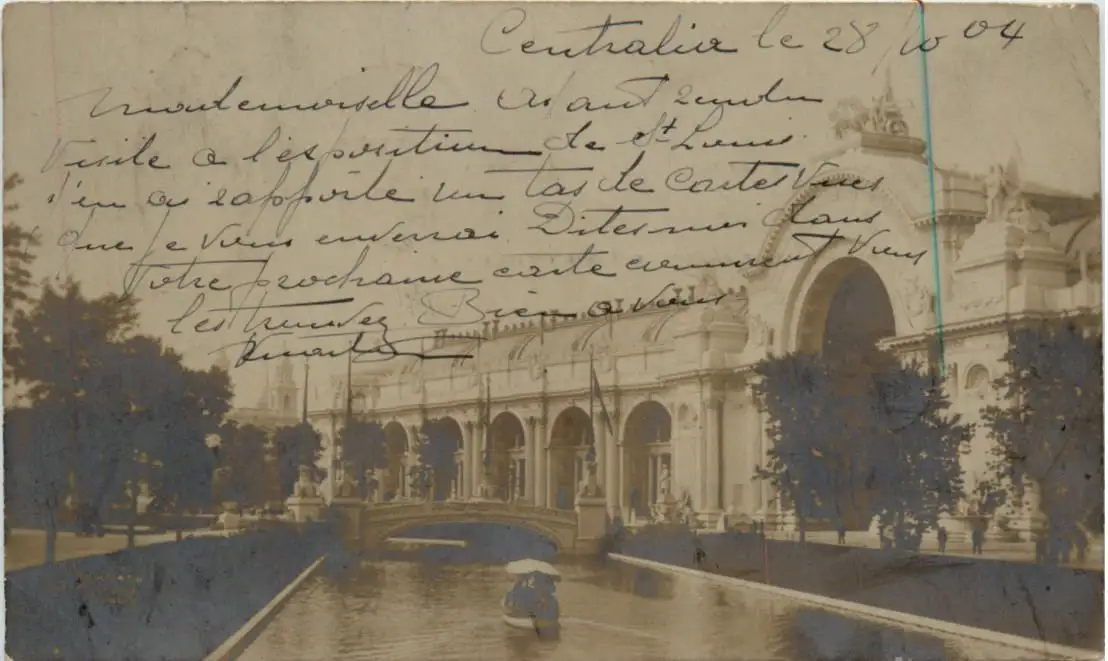 Centralia le 28/10 04
Mademoiselle Ayant rendu
visite a l'exposition de St Louis
j'en ai rapporté un tas de cartes vues
que je vous enverrai. Dites moi dans
votre prochaine carte comment vous
les trouvez Bien a vous